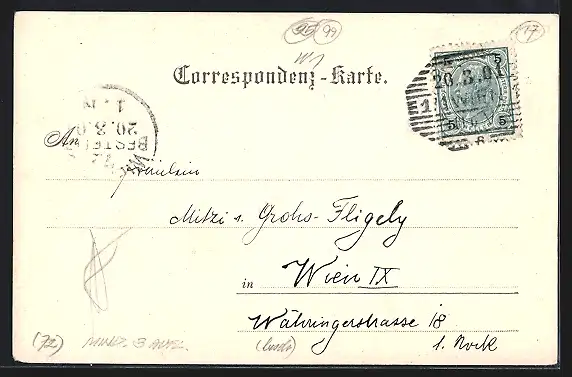 99
17
W1
Correspondenz-Karte.
5 5
20.3.01
1
WIEN
5 5
1. IV
20.3.0
BESTELLT
An
Fräulein
Mitzi v. Grohs-Fligely
in Wien IX
Währingerstrasse 18
1. Stock
(72)